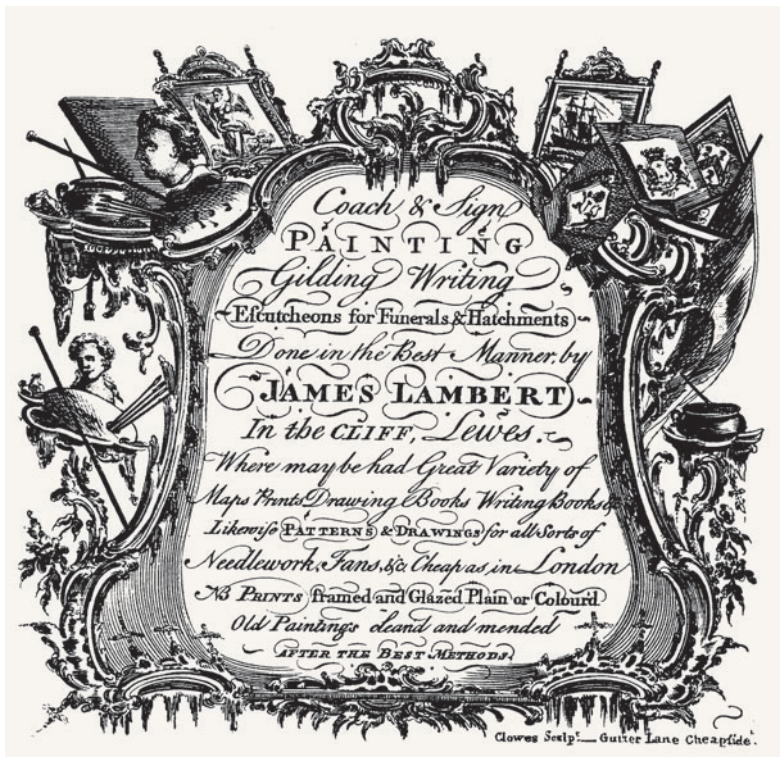 Coach & Sign
PAINTING
Gilding Writing
Eſcutcheons for Funerals & Hatchments
Done in the Best Manner, by
JAMES LAMBERT
In the CLIFF, Lewes.
Where may be had Great Variety of
Maps Prints Drawing Books Writing Books &
Likewiſe PATTERNS & DRAWINGS for all Sorts of
Needlework, Fans, &c. Cheap as in London
NB PRINTS framed and Glazed Plain or Colourd
Old Paintings cleand and mended
AFTER THE BEST METHODS.
Clowes Sculpt. — Gutter Lane Cheapſide.